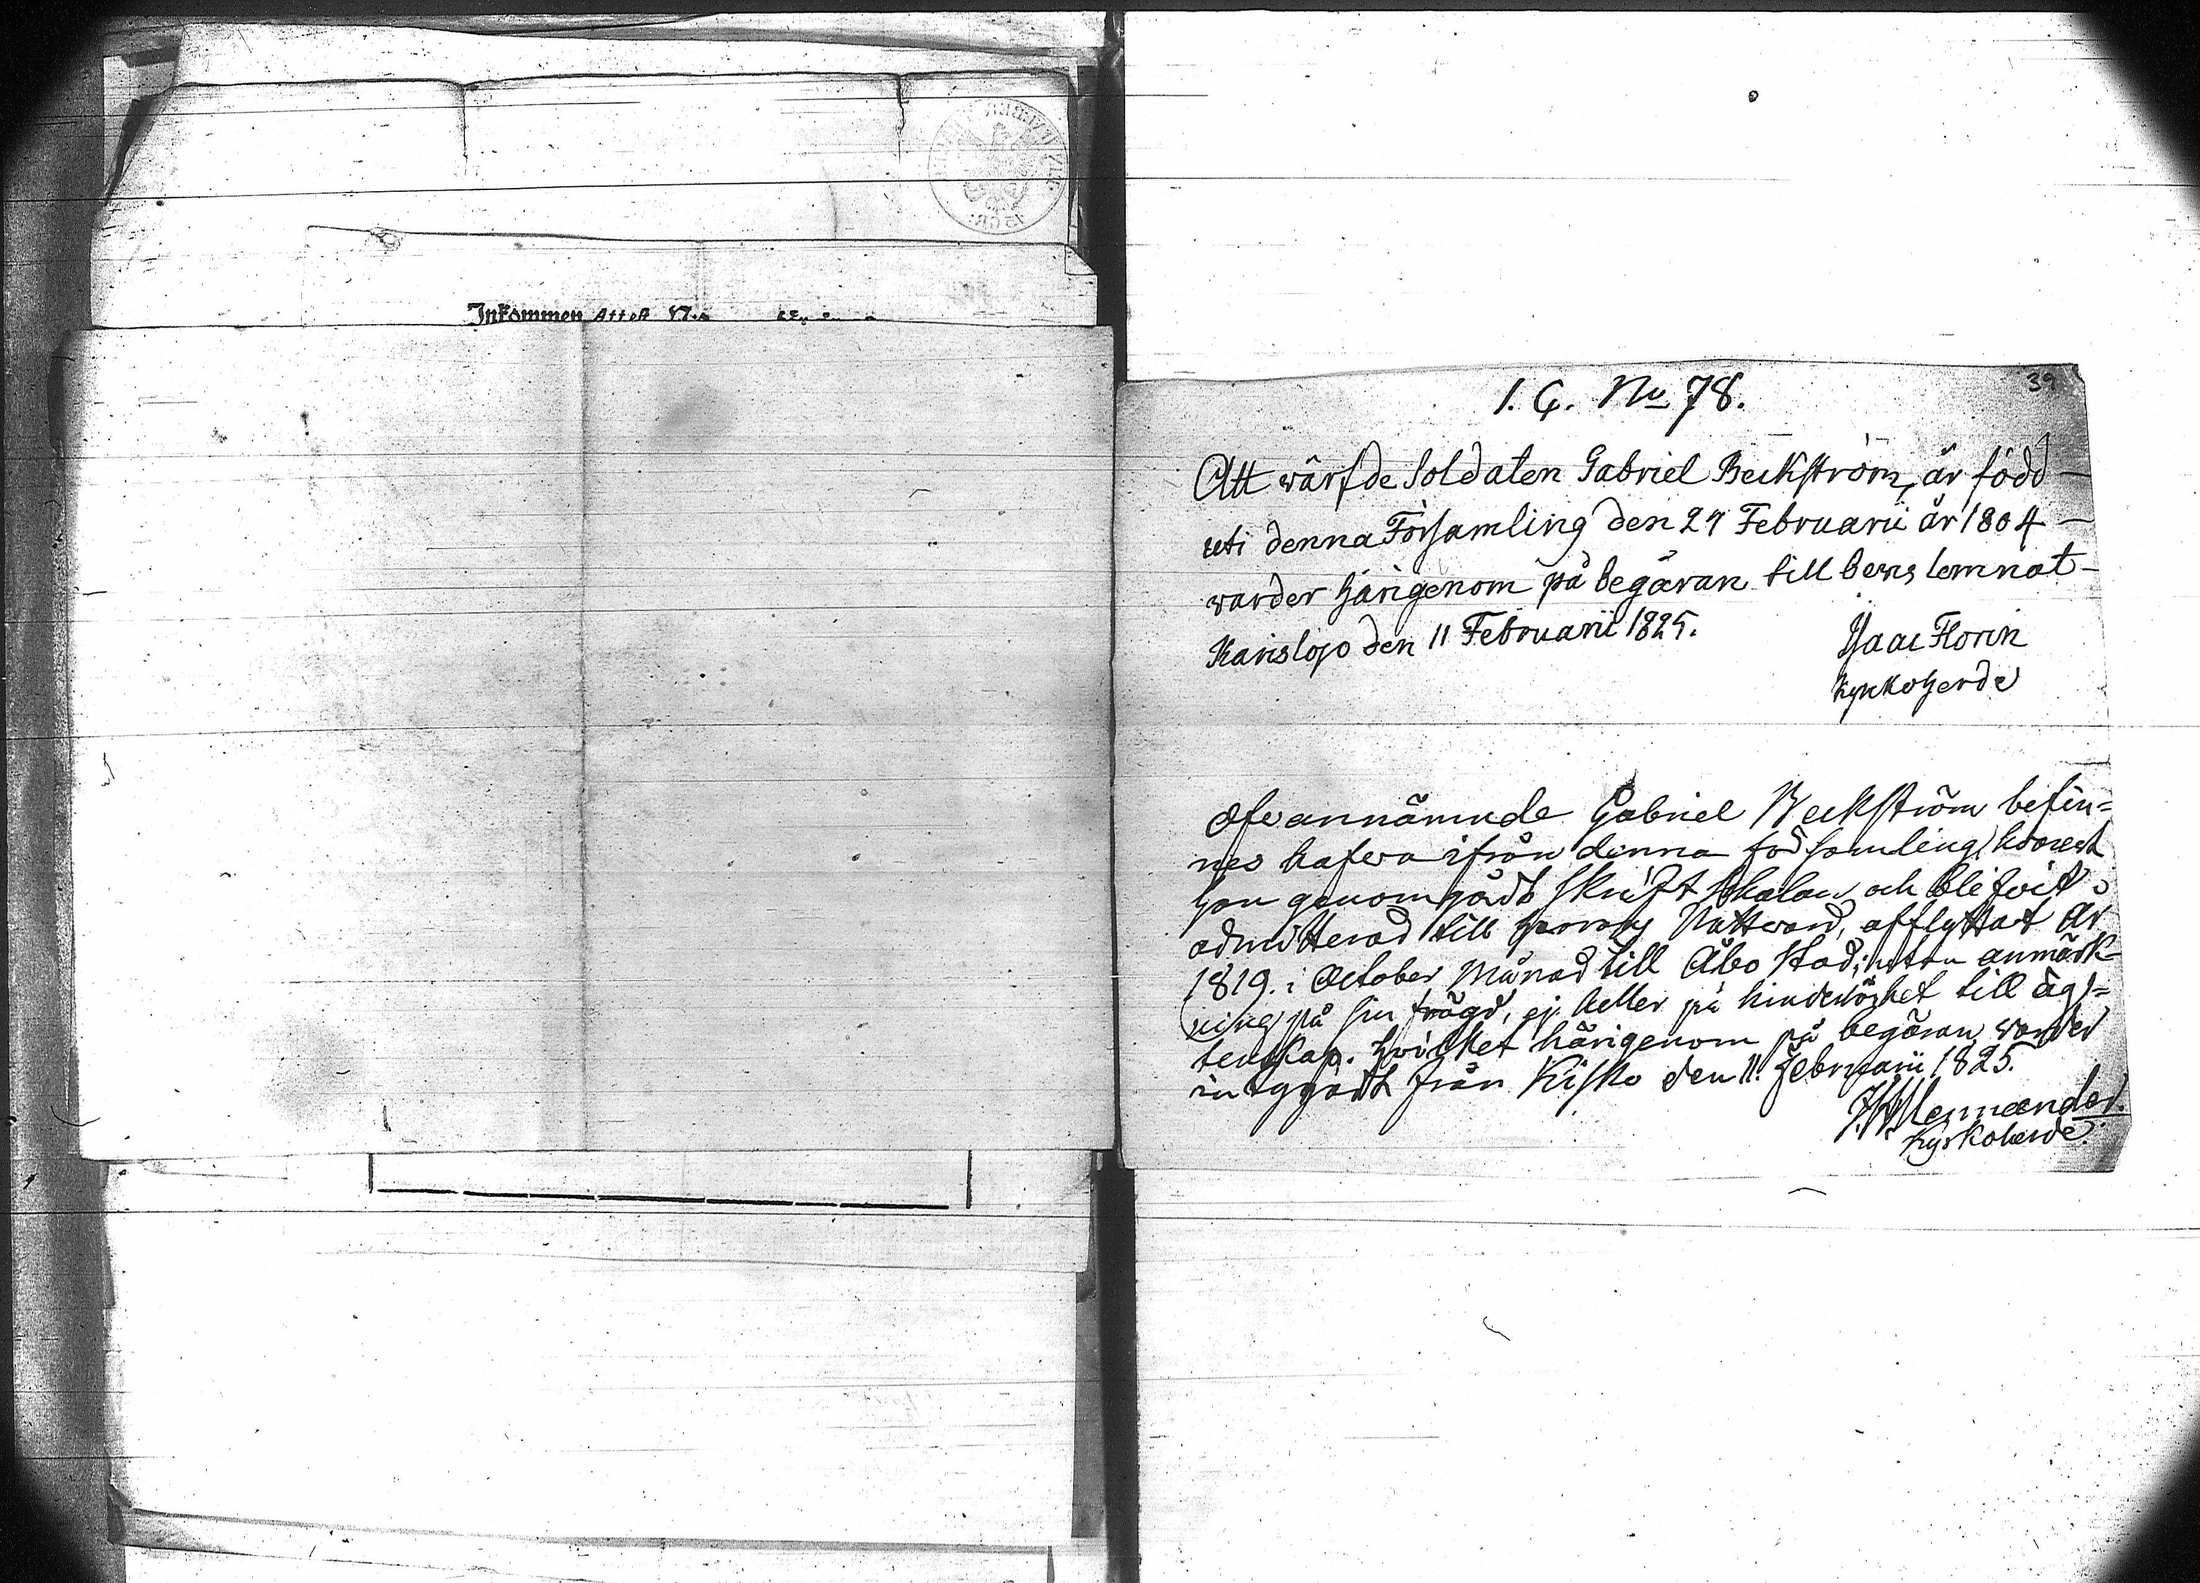 Inkommen Attest
39
1. C. No 78.
Att wärfde Soldaten Gabriel Beckström, är född
uti denna Församling den 27 Februarii år 1804
warder härigenom på begäran till bewis lemnat
Karislojo den 11 Februarii 1825.
Isaac Florin
Kyrkoherde
Ofwannämnde Gabriel Beckström befin=
nes hafwa ifrån denna församling, hworest
han genomgådt Skrift Skolan och blifvit
admitterad till Herrans Nattvard, afflyttat år
1819. i October Månad till Åbo Stad, utan anmärk-
ning på sin frägd, ej heller på hinderlöshet till äg=
tenskap. Hvilket härigenom på begäran warder
intygadt från Kisko den 11. Februarii 1825.
Mennander.
Kyrkoherde.